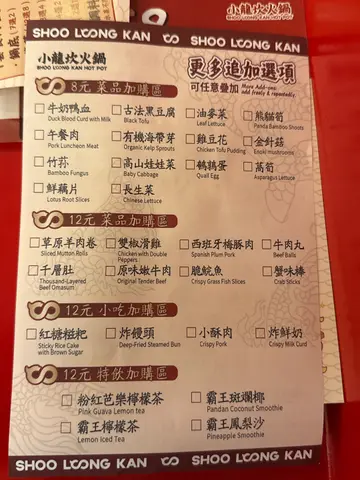 小龍坎火鍋
SHOO LOONG KAN HOT POT
SHOO LOONG KAN SHOO LOONG KAN
小龍坎火鍋
SHOO LOONG KAN HOT POT
更多追加選項
可任意疊加 More Add-ons: add freely & repeatedly.
8元 菜品加購區
牛奶鴨血 古法黑豆腐 油麥菜 熊貓筍
Duck Blood Curd with Milk Black Tofu Leaf Lettuce Panda Bamboo Shoots
午餐肉 有機海帶芽 雞豆花 金針菇
Pork Luncheon Meat Organic Kelp Sprouts Chicken Tofu Pudding Enoki mushrooms
竹荪 高山娃娃菜 鵪鶉蛋 萵筍
Bamboo Fungus Baby Cabbage Quail Egg Asparagus Lettuce
鮮藕片 長生菜
Lotus Root Slices Chinese Lettuce
12元 菜品加購區
草原羊肉卷 雙椒滑雞 西班牙梅豚肉 牛肉丸
Sliced Mutton Rolls Chicken with Double Peppers Spanish Plum Pork Beef Balls
千層肚 原味嫩牛肉 脆皖魚 蟹味棒
Thousand-Layered Beef Omasum Original Tender Beef Crispy Grass Fish Slices Crab Sticks
12元 小吃加購區
紅糖糍粑 炸饅頭 小酥肉 炸鮮奶
Sticky Rice Cake with Brown Sugar Deep-Fried Steamed Bun Crispy Pork Crispy Milk Curd
12元 特飲加購區
粉紅芭樂檸檬茶 霸王斑斕椰
Pink Guava Lemon tea Pandan Coconut Smoothie
霸王檸檬茶 霸王鳳梨沙
Lemon Iced Tea Pineapple Smoothie
SHOO LOONG KAN SHOO LOONG KAN